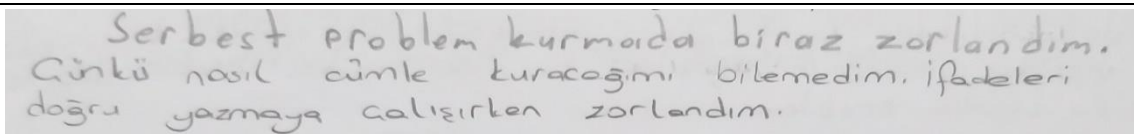 Serbest problem kurmada biraz zorlandım.
Çünkü nasıl cümle kuracağımı bilemedim. ifadeleri
doğru yazmaya çalışırken zorlandım.